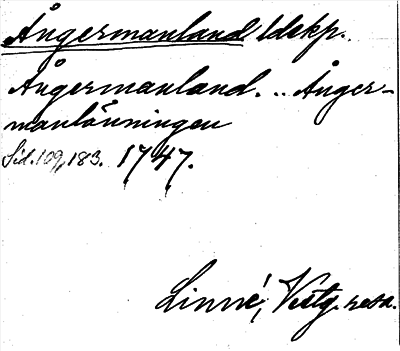 Ångermanland ldskp.
Ångermanland. .. Ånger-
manlänningen
Sid. 109, 183. 1747.
Linné, Vestg. resa.